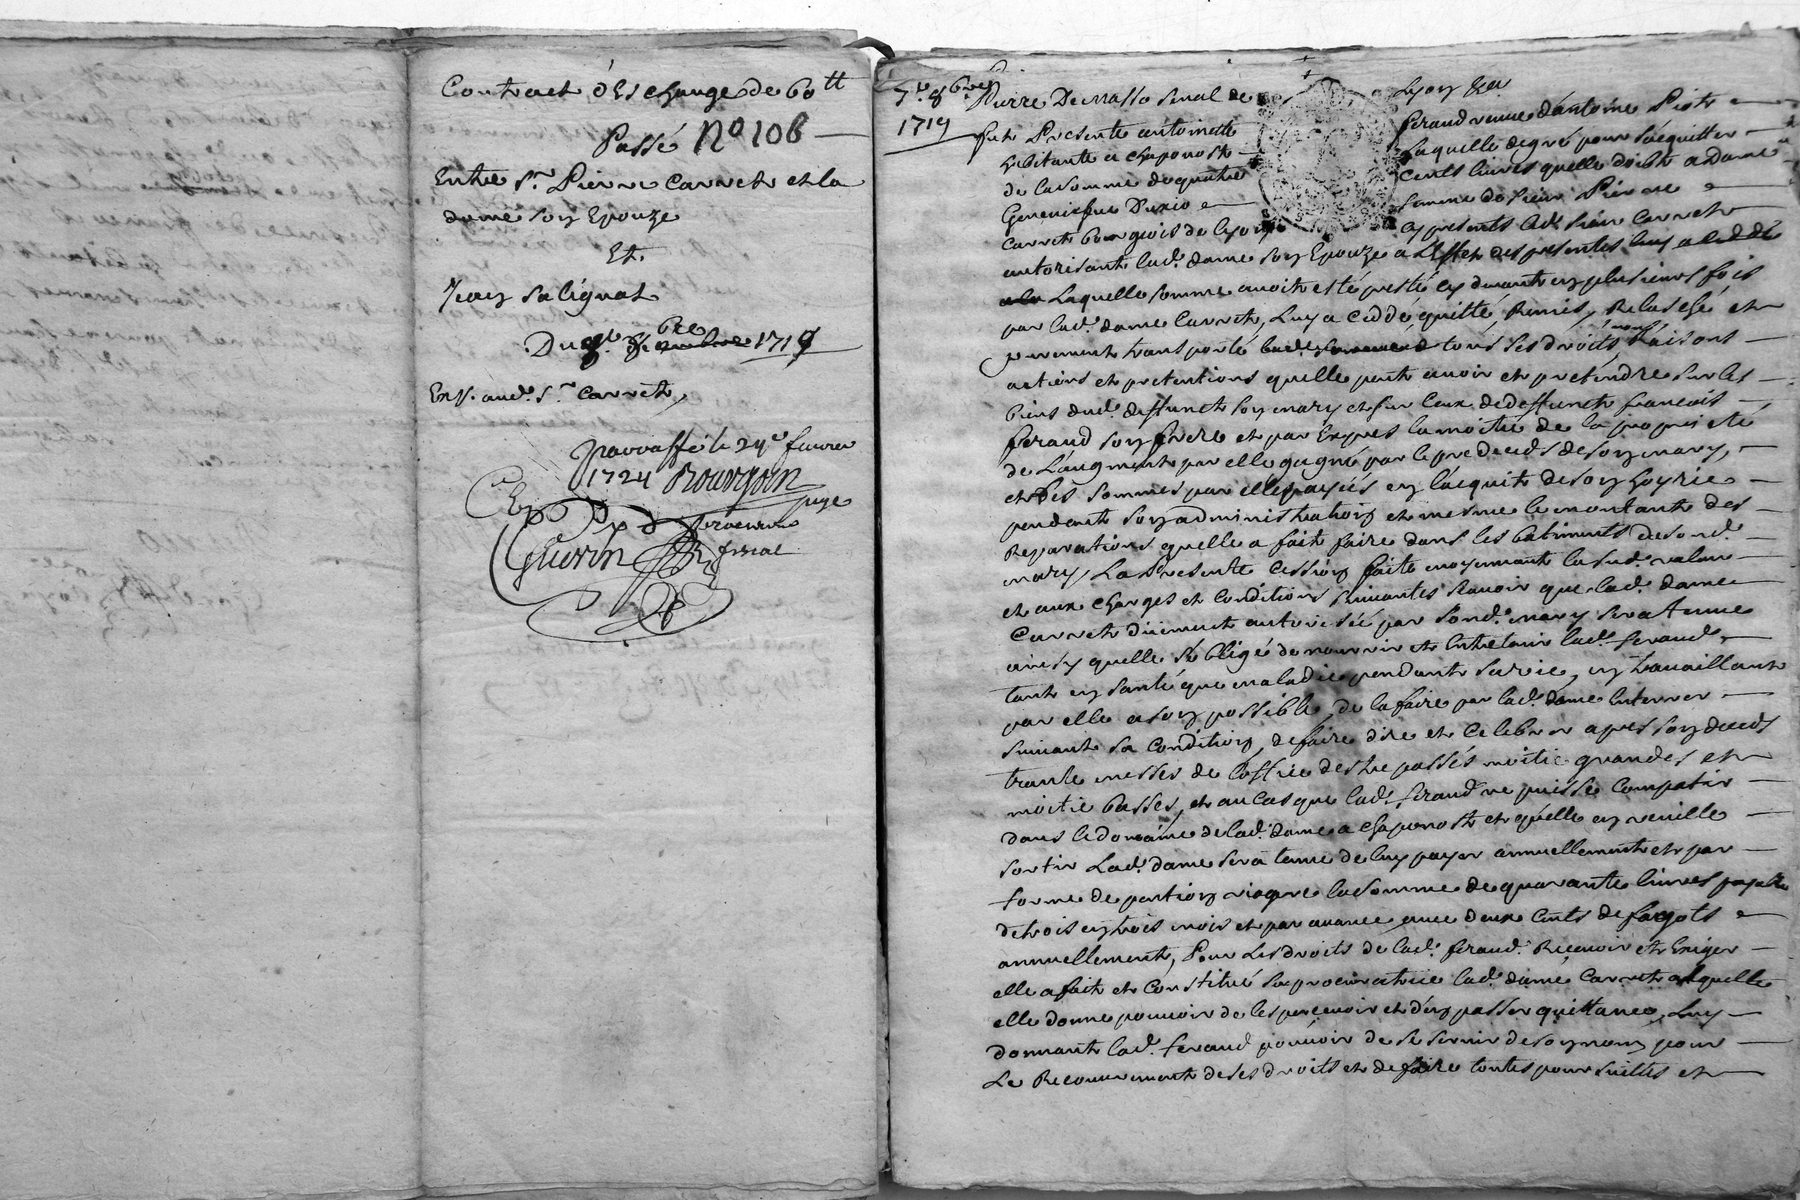 Contract d'Eschange de 60 tt
Passé N° 106
Entre Sr. Pierre Carret et la
dame son Epouze
Et.
Jean Salignat
Du 9e. 8bre 1719
Exp. aud. Sr. Carret
Parraffé le 24e fevrier
1724 Bourgoin
juge
Guerin procureur
fiscal
7e. 8bre
1719
Pierre Demasso senal de Lyon
fut Presente antoinette feraud veuve d'antoine Piot
habitante a chaponost laquelle de gré pour s'acquitter
de la somme de quatre cents livres quelle doibt a dame
Geneviefve femme de sieur Pierre
Carret bourgeois de Lyon cy presents led. sieur Carret
autorisant lad. dame son Epouze a l'effet des presentes
laquelle somme avoit esté presté cy devant en plusieurs fois
par lad. dame Carret, luy a ceddé, quitté, Remis, Relasché et
purement transporté tous ses droits, noms, raisons
actions et pretentions quelle peut avoir et pretendre sur les
biens dud. deffunct son mary et sur ceux de deffunct francois
feraud son frere et par Exprès la moitié de la proprieté
de L'augment par elle gagné par le predeceds de son mary,
et des sommes par elle payés en l'acquit de son hoyrie
pendant son administration et mesme le montant des
Reparations quelle a fait faire dans les bâtiments de sond.
mary, La Presente Cession faite moyennant la sud. valeur
et aux charges et Conditions suivantes scavoir que lad. dame
Carret düement autorisée par sond. mary sera tenue
ainsy quelle s'oblige de nourrir et Entretenir lad. feraud,
tant en santé que maladie pendant sa vie, en travaillant
par elle a son possible, de la faire par lad. dame Enterrer
suivant sa Condition, de faire dire et Celebrer apres son deceds
trante messes de l'office des trepassés moitié grandes et
moitié basses, et au cas que lad. feraud ne puisse Compatir
dans le domaine de lad. dame a chaponost et quelle en veuille
sortir Lad. dame sera tenue de luy payer annuellement et par
forme de pention viagere la somme de quarante livres payable
de trois en trois mois et par avance, avec deux Cents de fagots
annuellement, Pour les droits de lad. feraud Recevoir et Exiger
elle a fait et Constitué sa procuratrice lad. dame Carret a laquelle
elle donne pouvoir de les percevoir et d'en passer quittance, Luy
donnant lad. feraud pouvoir de se servir de son nom pour
Le Recouvrement de ses droits et de faire toutes poursuittes et